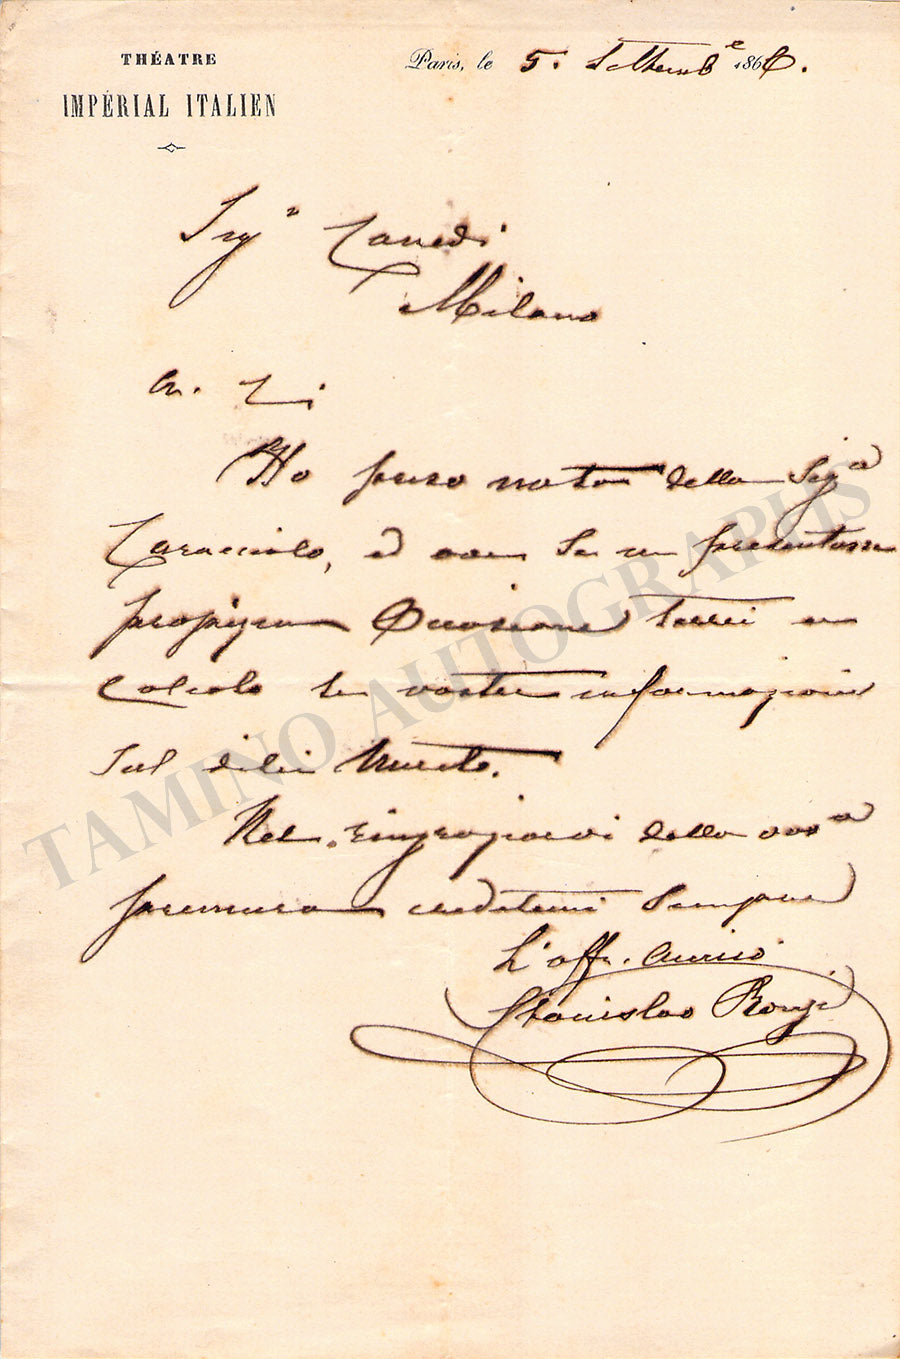 THÉATRE
IMPÉRIAL ITALIEN
Paris, le 5. Settembe 1866.
Sigr Zanedi
Milano
A. Z i
Ho preso nota della Siga
Caracciolo, ed ove se ne presentasse
propizia Occasione terrei in
calcolo le vostre informazioni
sul di lei merito.
Nel ringraziarvi della vosa
premura credetemi sempre
L'aff. amico
Stanislao Ronzi
TAMINO AUTOGRAPHS